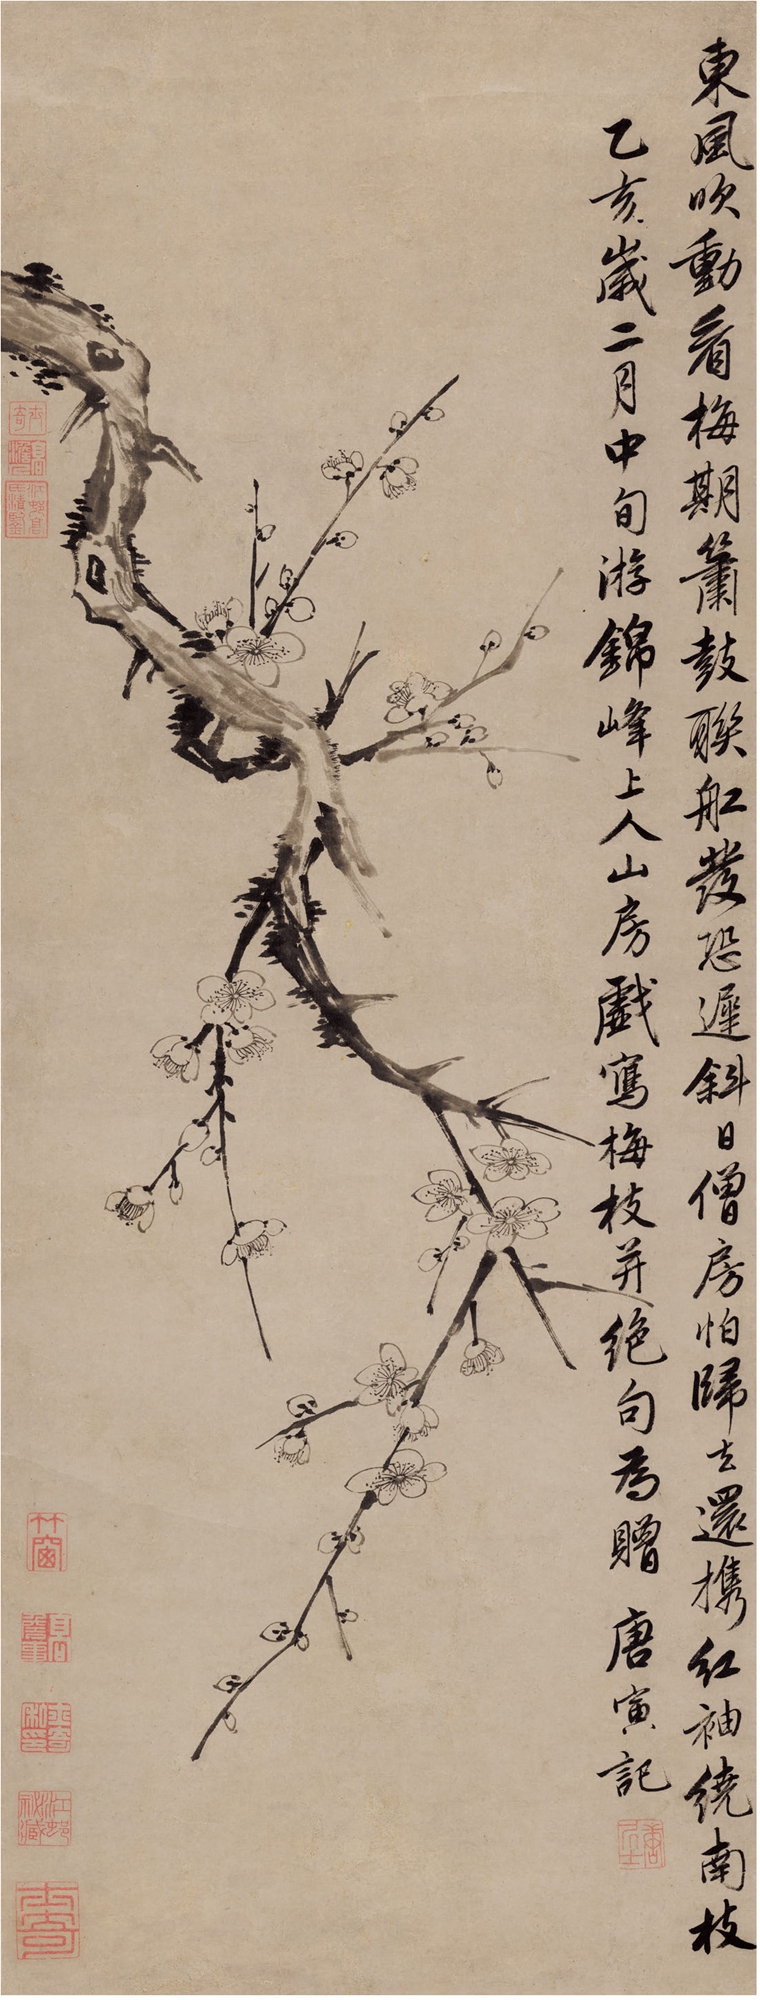 東風吹動看梅期簫鼓聯舡發恐遲斜日僧房怕歸去還携紅袖繞南枝
乙亥歲二月中旬游錦峰上人山房戲寫梅枝并絕句為贈 唐寅記
竹窗